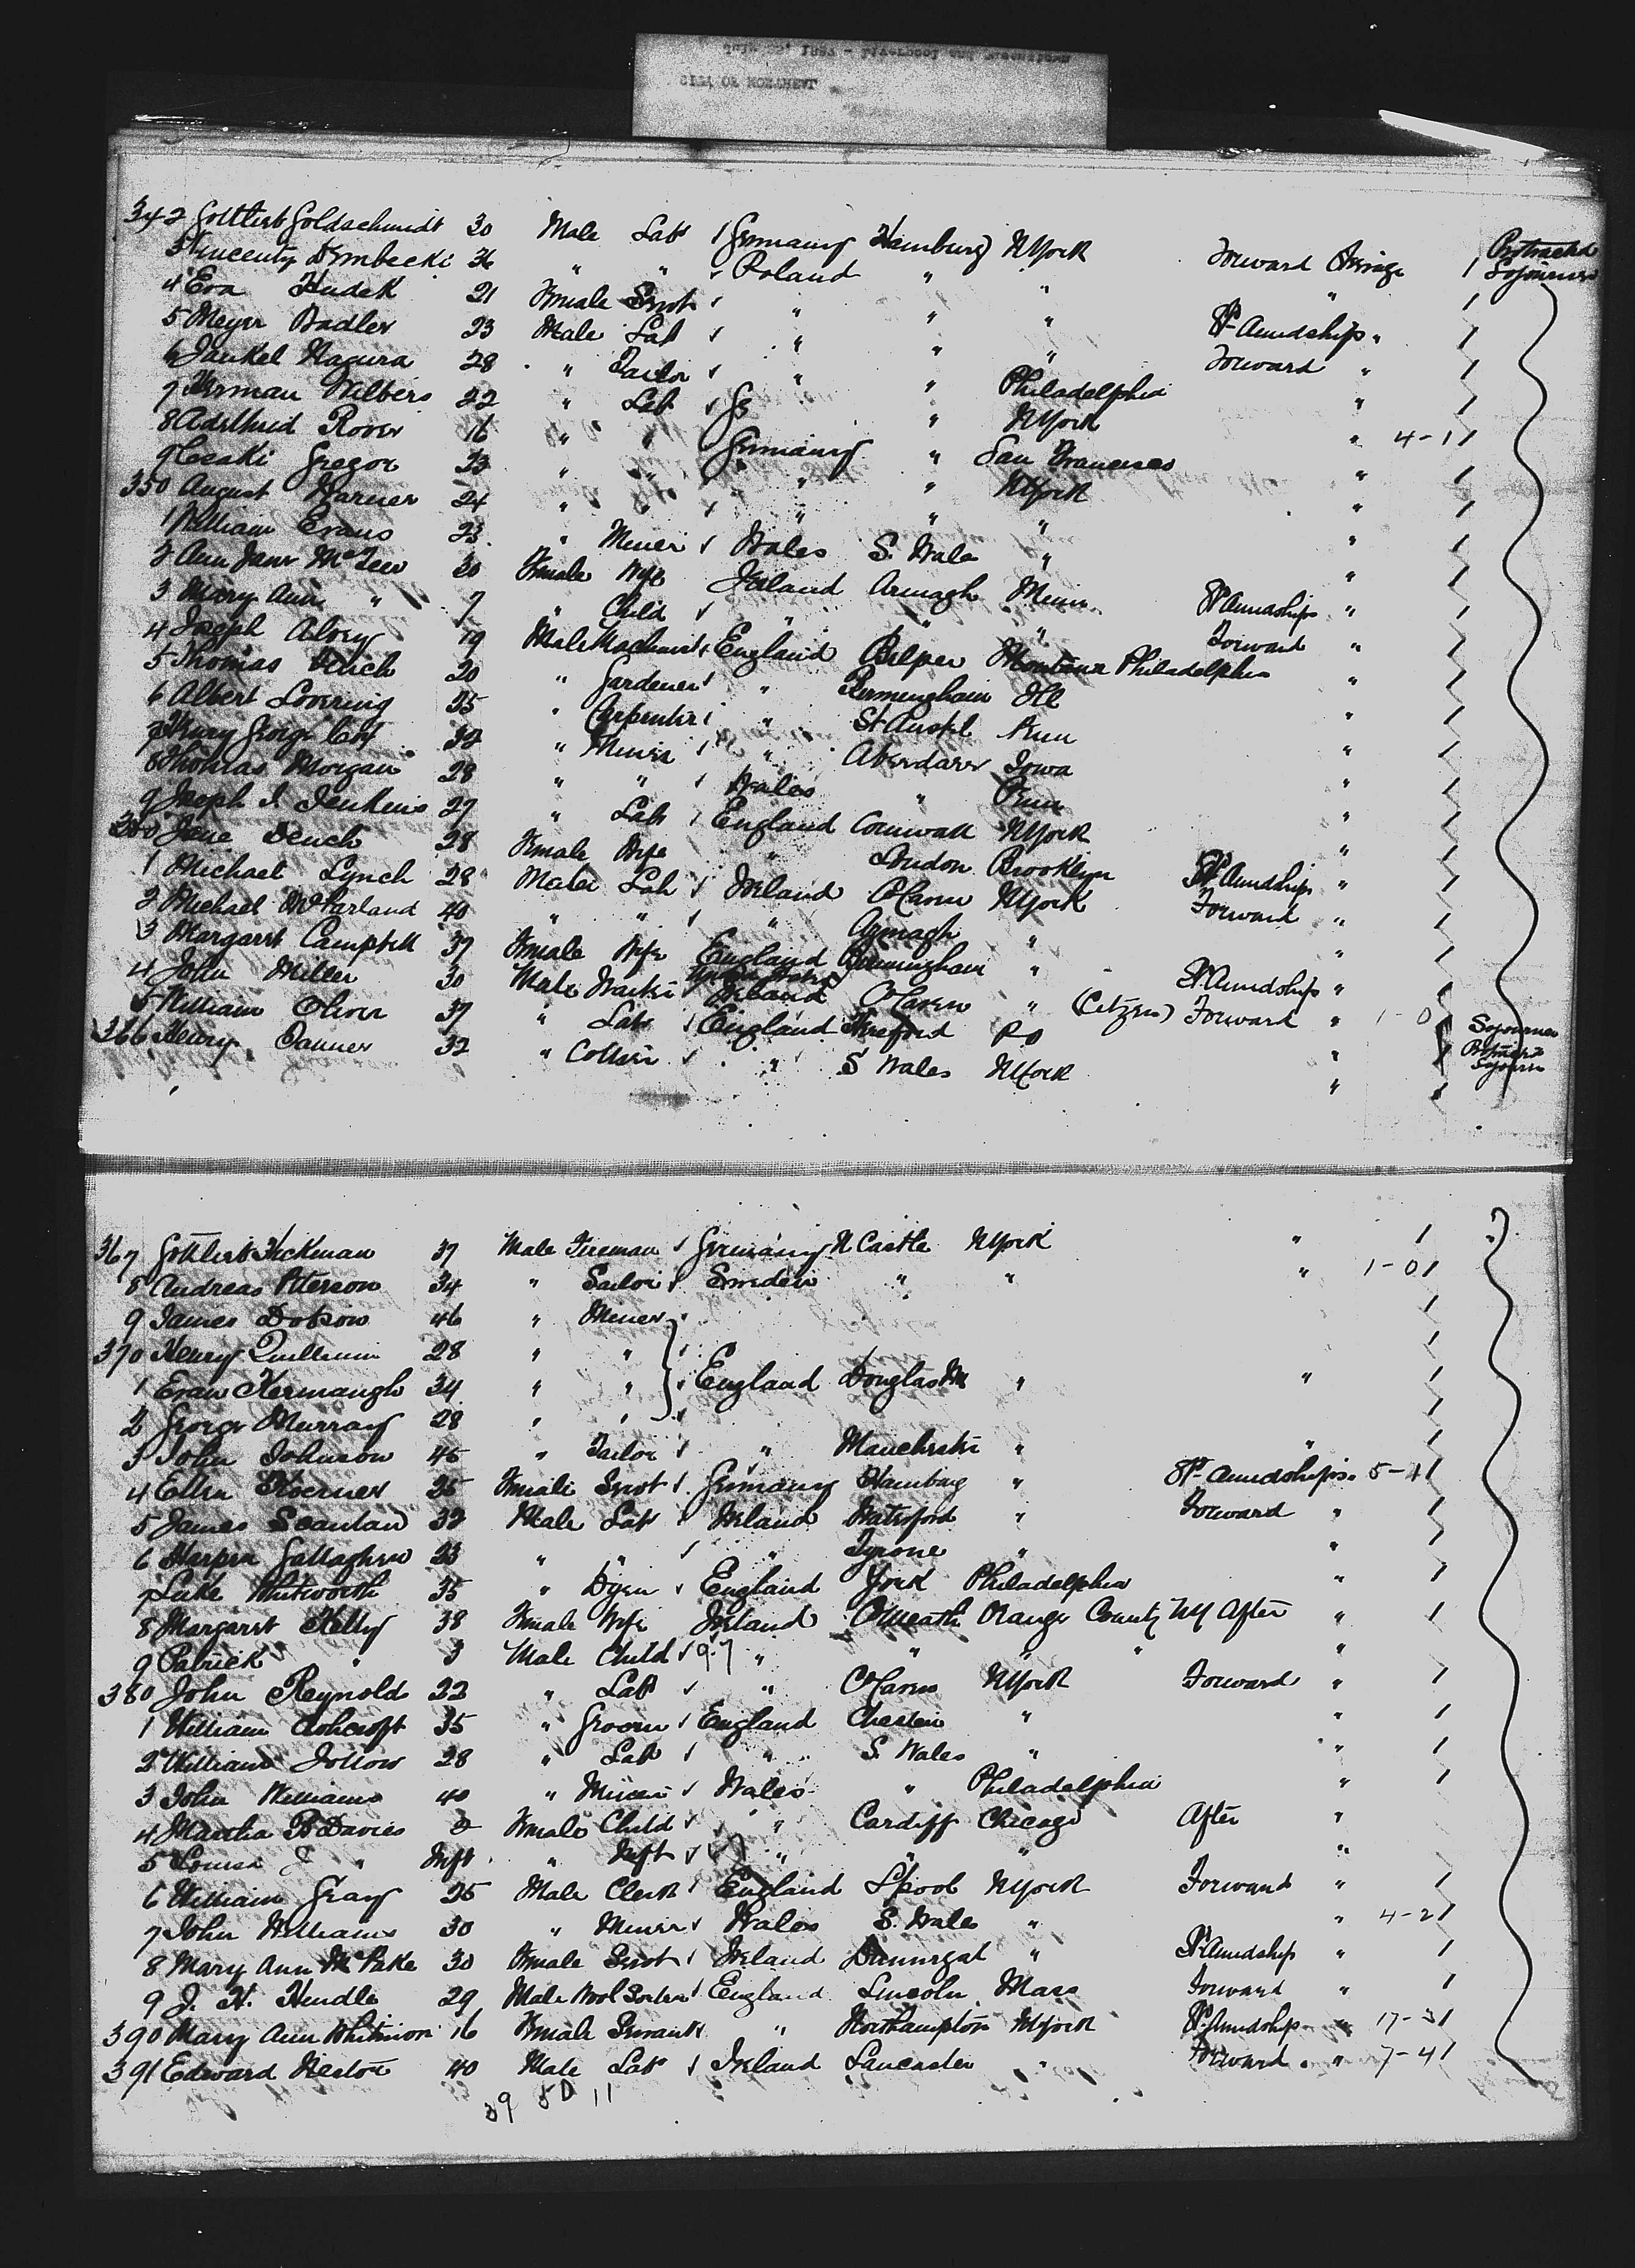 342 Gottlieb Goldschmidt 30 Male Lab Germany Hamburg NYork Forward Steerage 1 Protracted Sojourner
3 Vincenty Dembecki 36 " " Poland " " " 1
4 Eva Hudek 21 Female Servt " " " St Amidships " 1
5 Meyer Badler 23 Male Lab " " " Forward " 1
6 Jankel Nagura 28 " Tailor " " Philadelphia " 1
7 Herman Wilbers 22 " Lab Ge " NYork " 4-1 1
8 Adelheid Rover 16 " " Germany " San Francisco " 1
9 Czaki Gregor 23 " " " " NYork " 1
350 August Warner 24 " " " " " " 1
1 William Evans 23 " Miner Wales S. Wales " " 1
2 Ann Jane McTeer 30 Female Wife Ireland Armagh Minn St Amidships " 1
3 Mary Ann " 7 " Child " " " Forward " 1
4 Joseph Alvey 19 Male Machinist England Belper Montana Philadelphia " 1
5 Thomas Dench 20 " Gardener " Birmingham Ill " 1
6 Albert Loveing 25 " Carpenter " St Austel Penn " 1
7 Henry George Cox 32 " Miner " Aberdare Iowa " 1
8 Thomas Morgan 28 " " Wales " Penn " 1
9 Joseph J. Jenkins 27 " Lab England Cornwall NYork " 1
360 Jane Dench 28 Female Wife " London Brooklyn St Amidships " 1
1 Michael Lynch 28 Male Lab Ireland Cavan NYork Forward " 1
2 Michael McParland 40 " " " Armagh " " 1
3 Margaret Campbell 37 Female Wife England Birmingham " St Amidships " 1
4 John Miller 30 Male Ireland Cavan " (Citizen) Forward " 1-0 Sojourner
5 William Oliver 37 " Lab England Hereford " 1 Protracted
366 Henry Danner 32 " Collier " S Wales NYork " 1 Sojourn
367 Gottlieb Hickman 37 Male Fireman Germany N Castle NYork " 1
8 Andreas Peterson 34 " Sailor Sweden " " " 1-0 1
9 James Dobson 46 " Miner 1
370 Henry Quilliam 28 " " 1
1 Evan Kermaugh 34 " " England Douglas IM " " 1
2 George Murray 28 " " 1
3 John Johnson 45 " Tailor " Manchester " " 1
4 Ellen Koerner 25 Female Servt Germany Hamburg " St Amidships " 5-4 1
5 James Scanlan 32 Male Lab Ireland Waterford " Forward " 1
6 Gallagher 23 " " " Tyrone " " 1
7 Luke Whitworth 35 " Dyer England York Philadelphia " 1
8 Margaret Kelly 38 Female Wife Ireland Co Meath Orange County NY After " 1
9 Patrick " 3 Male Child 9.7 " " " " "
380 John Reynolds 22 " Lab " Co Cavan NYork Forward " 1
1 William Ashcroft 35 " Groom England Chester " " 1
2 William Jollow 28 " Lab " S. Wales " " 1
3 John Williams 40 " Miner Wales " Philadelphia " 1
4 Martha B Davies 2 Female Child " Cardiff Chicago After "
5 Louisa J " Inft " Inft " " " "
6 William Gray 25 Male Clerk England Lpool NYork Forward " 1
7 John Williams 30 " Miner Wales S. Wales " " 4-2 1
8 Mary Ann McPake 30 Female Servt Ireland Dunnegal " St Amidship " 1
9 J. H. Hindle 29 Male Wool Sorter England Lincoln Mass Forward " 1
390 Mary Ann Whitmore 16 Female Servant " Northampton NYork St Amidship " 17-3 1
391 Edward Nestor 40 Male Lab Ireland Lancaster " Forward " 7-4 1
39 50 11